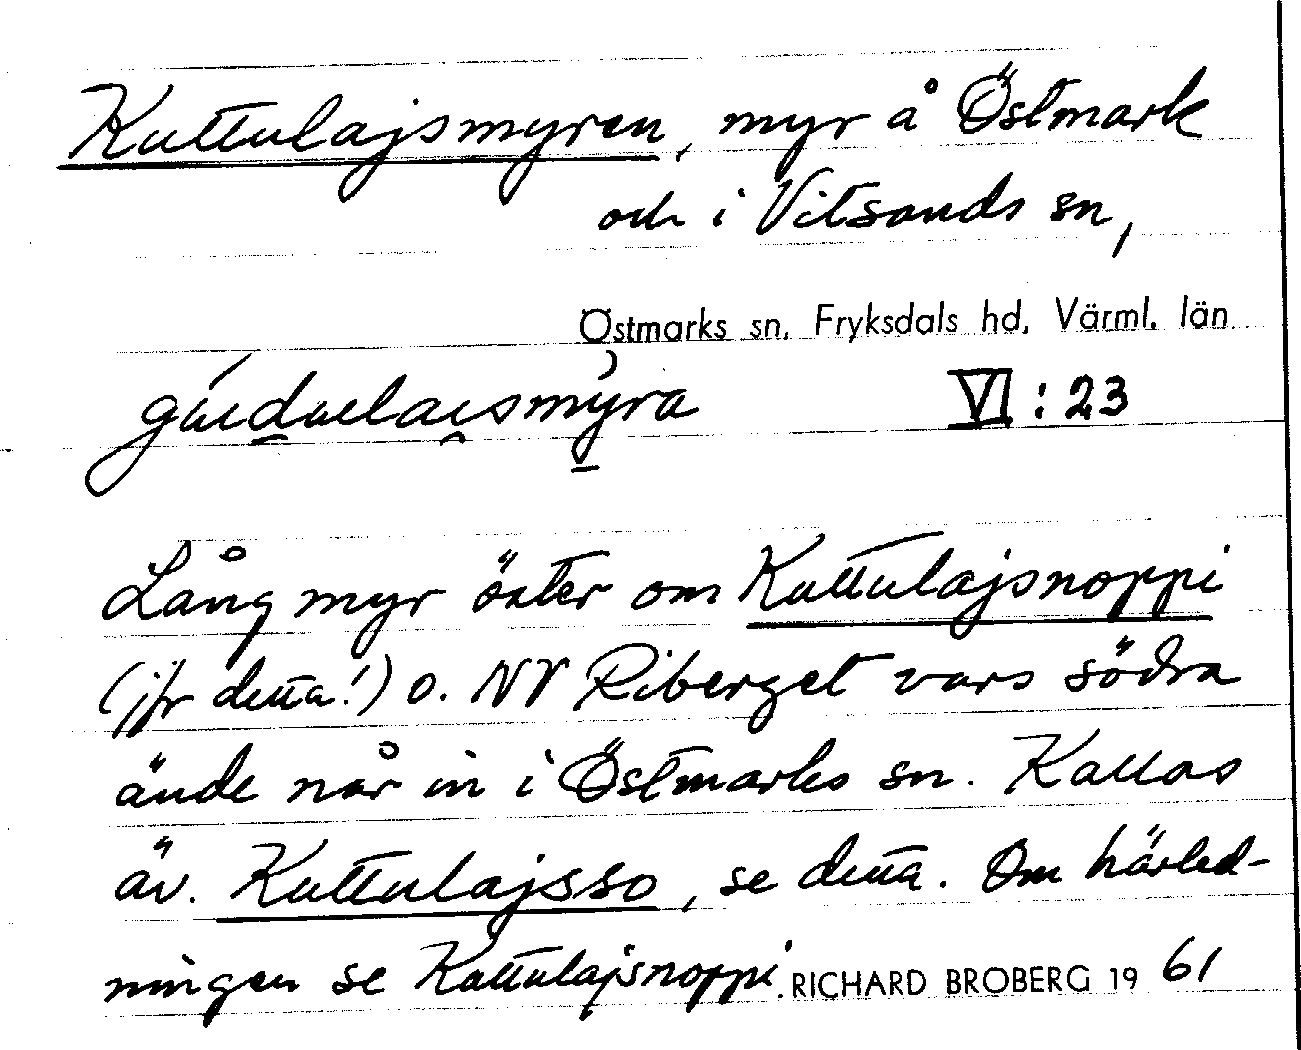 Kuttulajsmyren, myr å Östmark
och i Vitsands sn,
Östmarks sn, Fryksdals hd, Värml. län
VI: 23
Lång myr öster om Kuttulajsnoppi
(jfr detta!) o. NV Riberget vars södra
ände når in i Östmarks sn. Kallas
äv. Kuttulajsso, se detta. Om härled-
ningen se Kuttulajsnoppi. RICHARD BROBERG 19 61